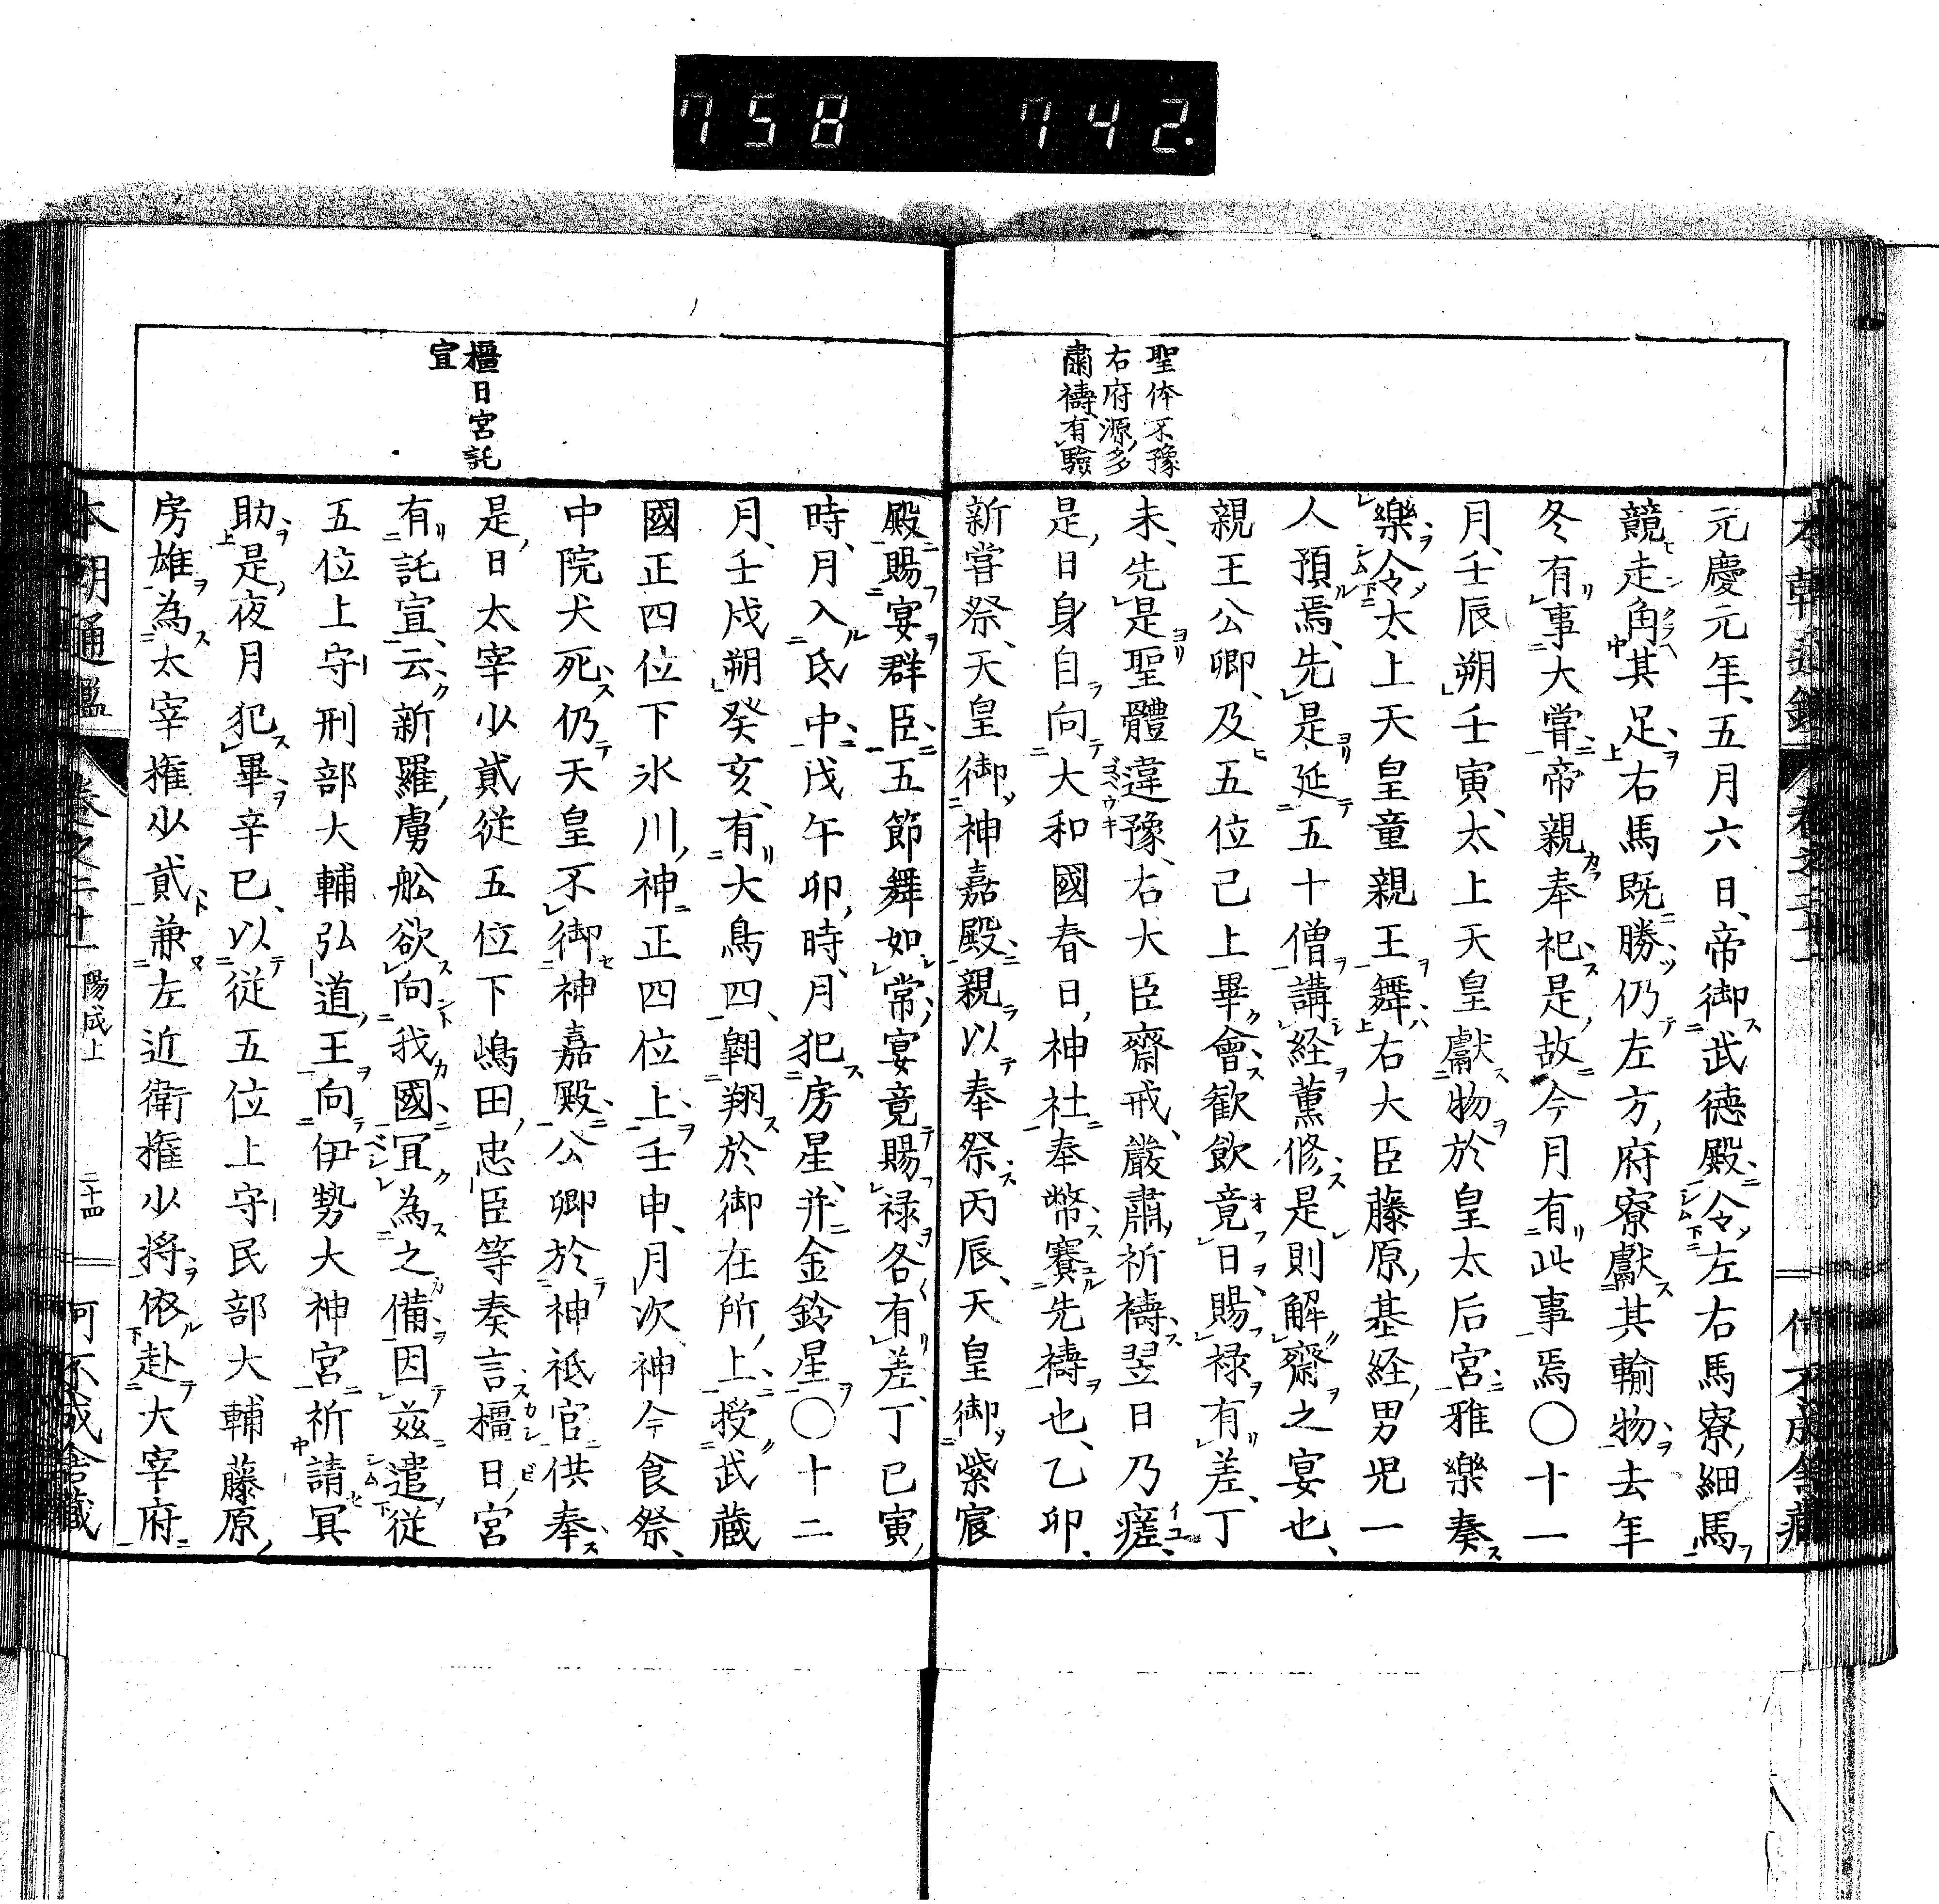 758 742.
聖体不豫
右府源多
肅禱有驗
元慶元年、五月六日、帝御武德殿、令左右馬寮細馬
競走角其足、右馬既勝、仍左方府寮獻其輸物、去年
冬有事大嘗、帝親奉祀、是故今月有此事焉〇十一
月、壬辰朔壬寅、太上天皇獻物於皇太后宮、雅樂奏
樂、令太上天皇童親王舞、右大臣藤原基経男児一
人預焉、先是延五十僧講経薫修、是則解齋之宴也、
親王公卿、及五位已上畢會歓飲竟日、賜禄有差、丁
未、先是聖體違豫、右大臣齋戒、嚴肅祈禱、翌日乃瘥、
是日身自向大和國春日神社奉幣、賽先禱也、乙卯、
新嘗祭、天皇御神嘉殿、親以奉祭、丙辰、天皇御紫宸
橿日宮託
宣
殿賜宴群臣、五節舞如常、宴竟賜禄各有差、丁巳寅
時、月入氐中、戊午卯時、月犯房星、并金鈴星〇十二
月、壬戌朔癸亥、有大鳥四、翺翔於御在所上、授武蔵
國正四位下氷川神正四位上、壬申、月次神今食祭、
中院犬死、仍天皇不御神嘉殿、公卿於神祇官供奉、
是日太宰少貳従五位下嶋田忠臣等奏言、橿日宮
有託宣、云、新羅虜舩欲向我國、冝為之備、因茲遣従
五位上守刑部大輔弘道王向伊勢大神宮、祈請冥
助、是夜月犯畢、辛巳、以従五位上守民部大輔藤原
房雄為太宰権少貳、兼左近衛権少将、依赴大宰府
本朝通鑑 巻之二十一 陽成上 二十四 何不成舎蔵